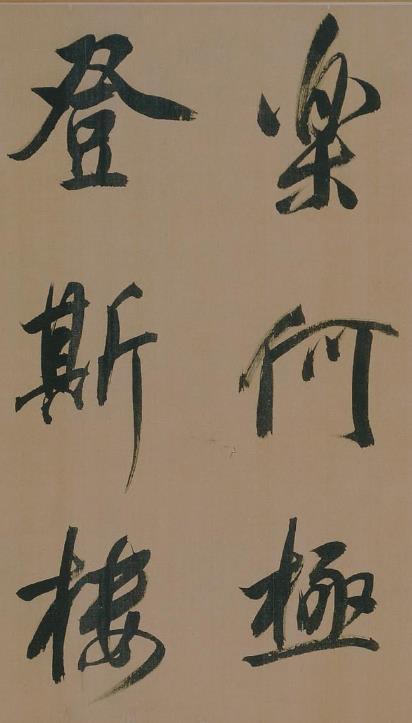 樂何極
登斯樓